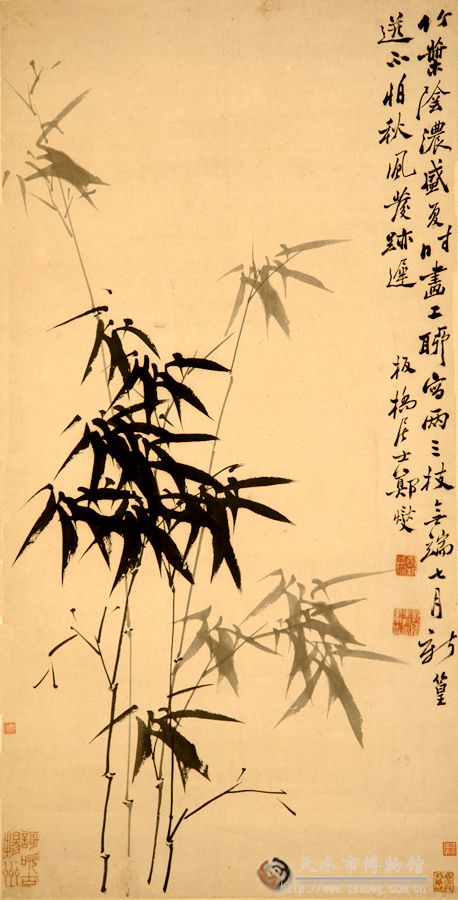 竹葉陰濃盛夏時畫工聊寫兩三枝無端七月新篁
送不怕秋風發跡遲
板橋居士鄭燮
歌吹古揚州
天水市博物馆